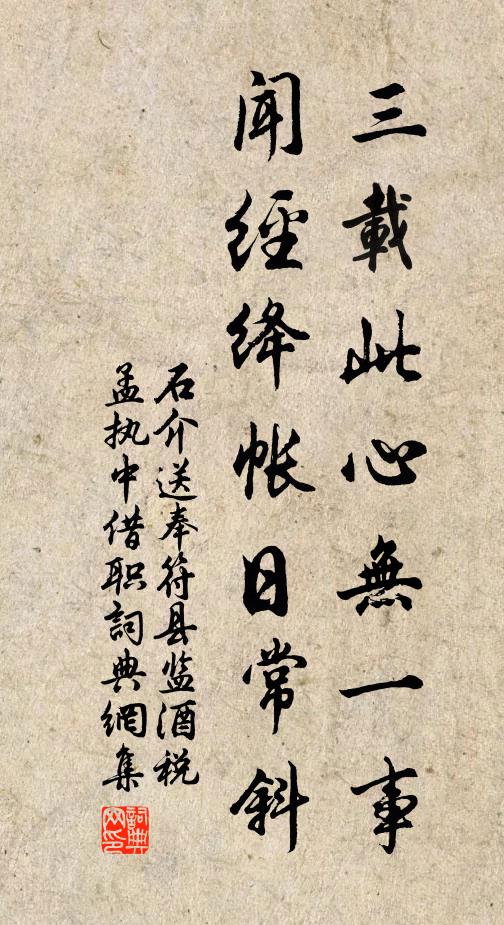 三載此心無一事
闻經绛帐日常斜
石介送奉符县监酒税
孟执中借职詞典網集
詞典网印